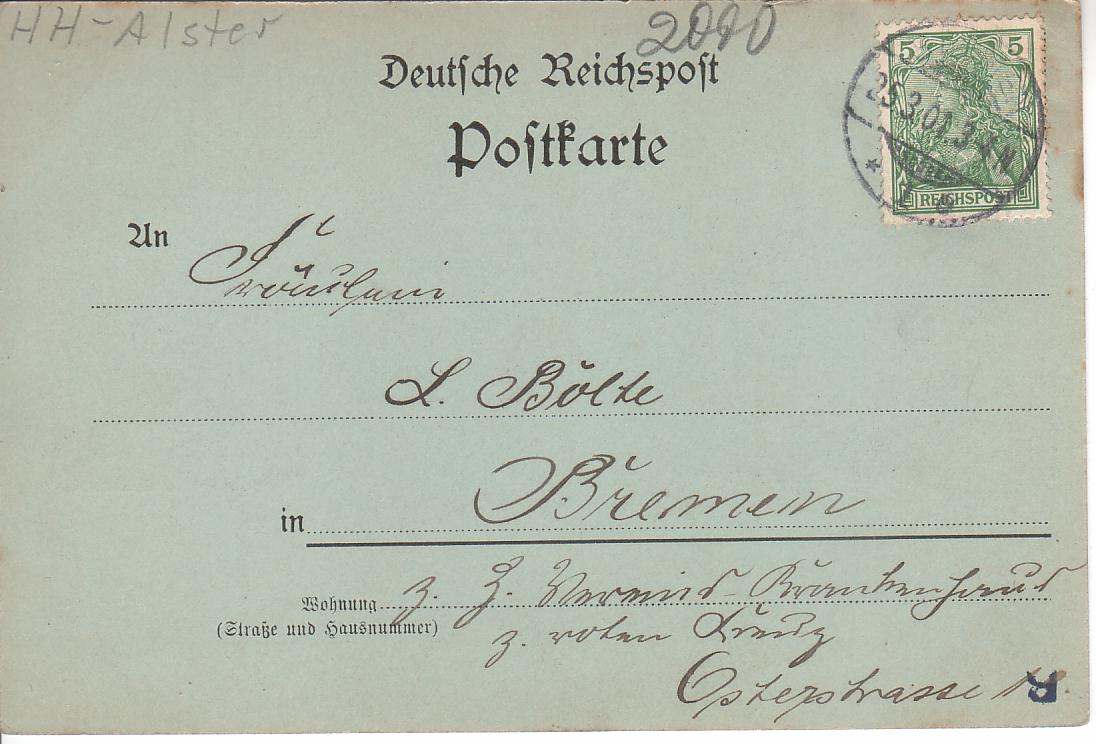 HH-Alster
2090
Deutsche Reichspost
Postkarte
5 5
REICHSPOST
25.3.01. 3-4 N
An Fräulein
L. Bölte
in Bremen
Wohnung z. Z. Vereins-Krankenhaus
(Straße und Hausnummer) z. roten Kreuz
Osterstrasse